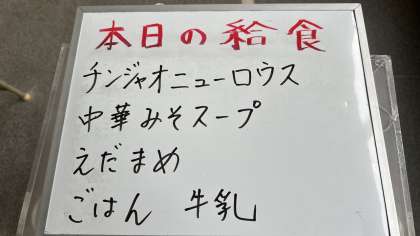 本日の給食
チンジャオニューロウス
中華みそスープ
えだまめ
ごはん 牛乳